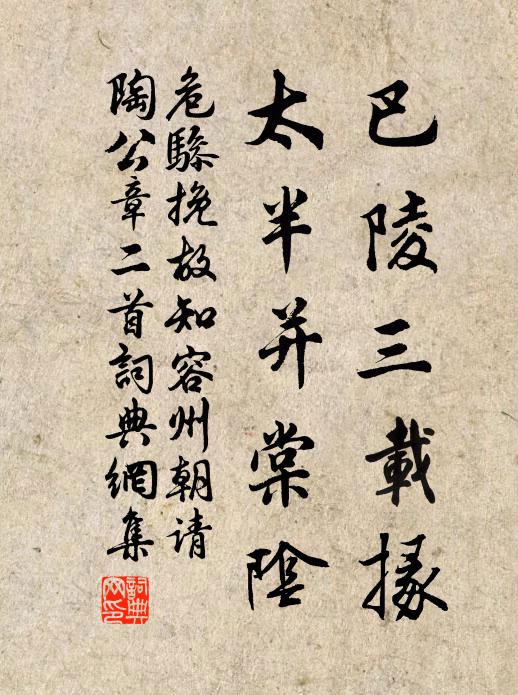 巴陵三載掾
太半并棠陰
危驂挽故知容州朝請
陶公章二首詞典網集
詞典網印